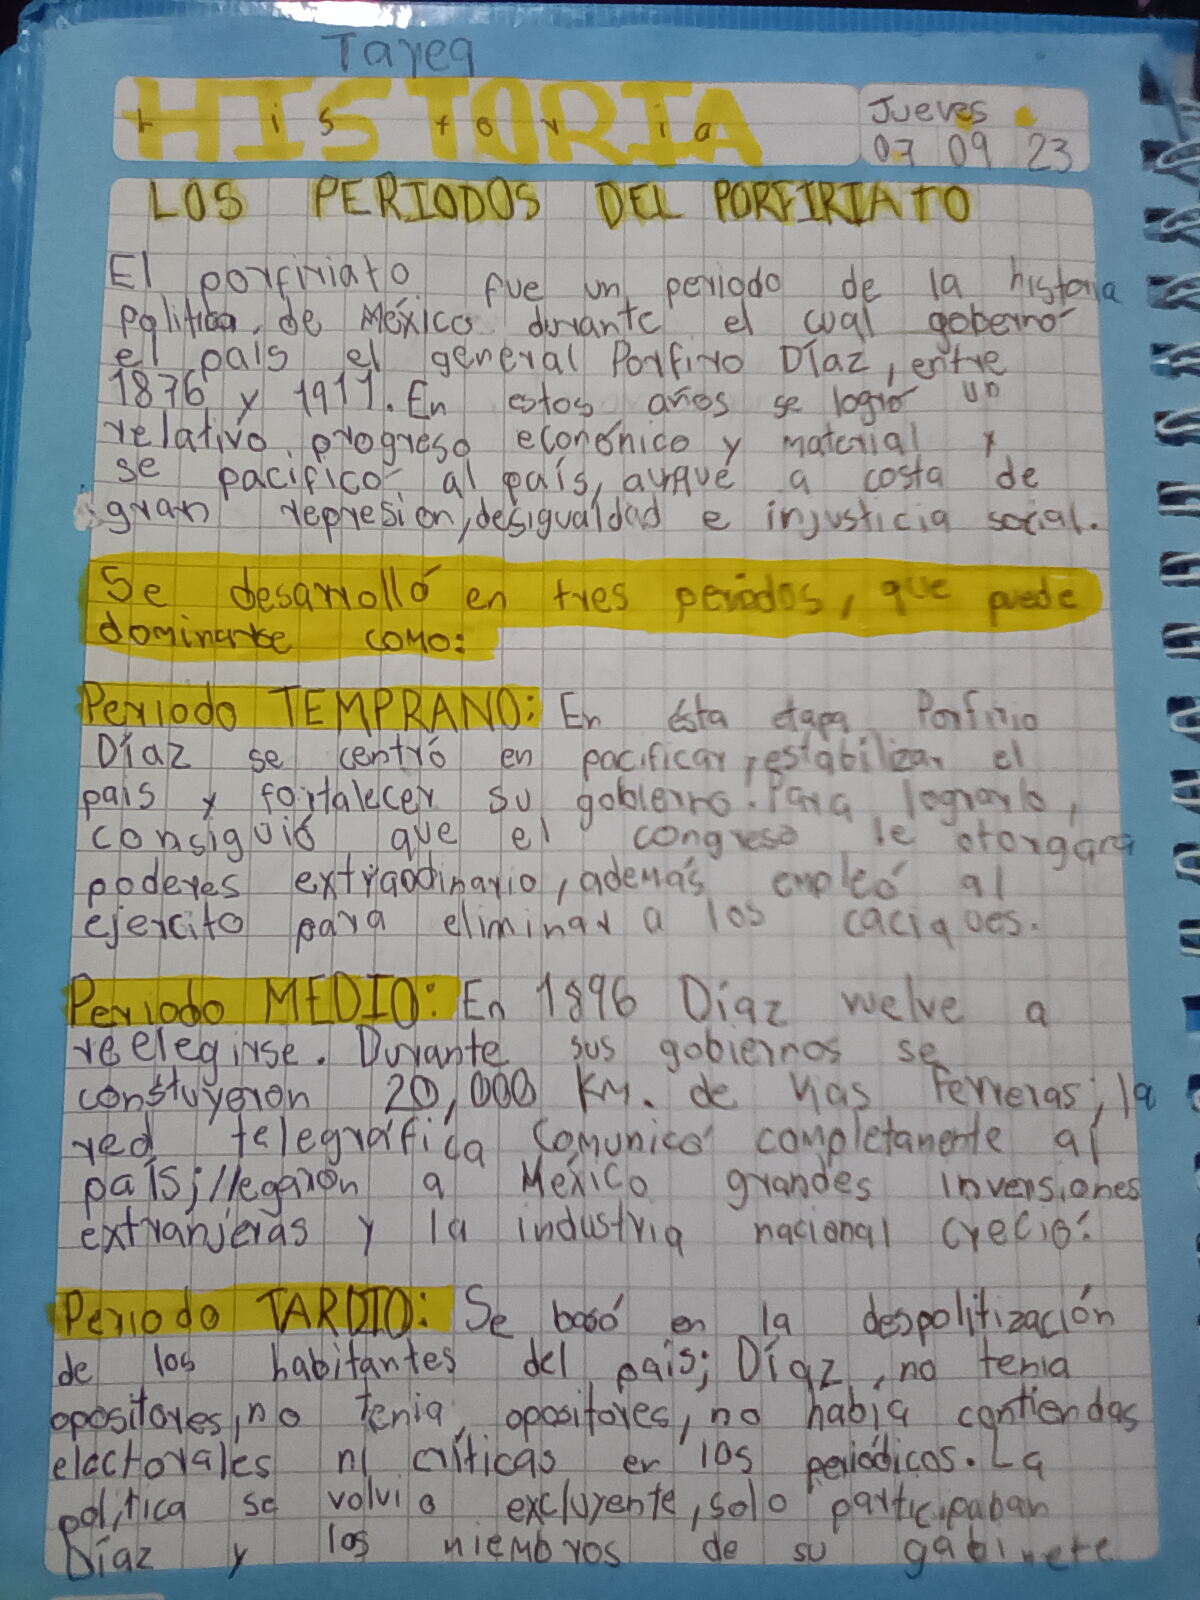 Tarea
HISTORIA
Historia
Jueves
07 09 23
LOS PERIODOS DEL PORFIRIATO
El porfiriato fue un periodo de la historia
politica, de México durante el cual goberno
el país el general Porfirio Díaz, entre
1876 y 1911. En estos años se logró un
relativo progreso económico y material y
se pacifico al país, aunque a costa de
gran represion, desigualdad e injusticia social.
Se desarrolló en tres periodos, que puede
dominarse como:
Periodo TEMPRANO: En ésta etapa Porfirio
Díaz se centró en pacificar, estabilizar el
pais y fortalecer su gobierno. Para lograrlo,
consiguió que el congreso le otorgara
poderes extraodinario, además empleó al
ejercito para eliminar a los caciques.
Periodo MEDIO: En 1896 Díaz vuelve a
reelegirse. Durante sus gobiernos se
construyeron 20,000 KM. de vias ferreras; la
red telegráfica comunicó completamente al
país; llegaron a México grandes inversiones
extranjeras y la industria nacional creció.
Periodo TARDIO: Se basó en la despolitización
de los habitantes del país; Díaz, no tenia
opositores, no tenia opositores, no había contiendas
electorales ni críticas en los periódicos. La
política se volvio excluyente, solo participaban
Díaz y los miembros de su gabinete